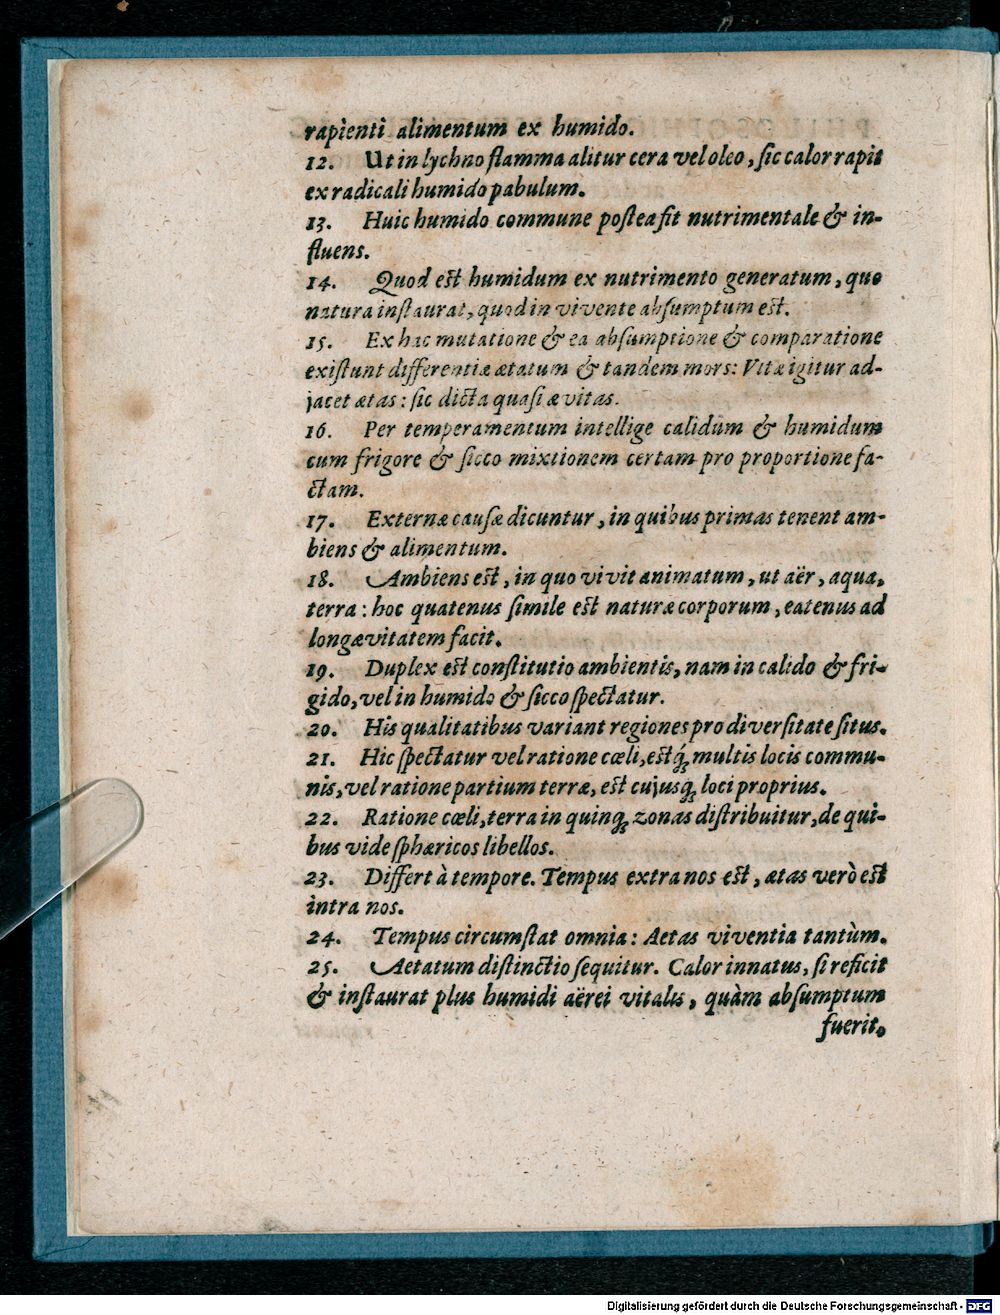 rapienti alimentum ex humido.
12. Ut in lychno flamma alitur cera vel oleo, ſic calor rapit
ex radicali humido pabulum.
13. Huic humido commune poſtea fit nutrimentale & in-
fluens.
14. Quod est humidum ex nutrimento generatum, quo
natura inſtaurat, quod in vivente abſumptum est.
15. Ex hac mutatione & ea abſumptione & comparatione
exiſtunt differentiæ ætatum & tandem mors: Vitæ igitur ad-
jacet ætas: ſic dicta quaſi ævitas.
16. Per temperamentum intellige calidum & humidum
cum frigore & ſicco mixtionem certam pro proportione fa-
ctam.
17. Externæ cauſæ dicuntur, in quibus primas tenent am-
biens & alimentum.
18. Ambiens est, in quo vivit animatum, ut aër, aqua,
terra: hoc quatenus ſimile est naturæ corporum, eatenus ad
longævitatem facit.
19. Duplex est conſtitutio ambientis, nam in calido & fri-
gido, vel in humido & ſicco ſpectatur.
20. His qualitatibus variant regiones pro diverſitate ſitus.
21. Hic ſpectatur vel ratione cœli, estq́; multis locis commu-
nis, vel ratione partium terræ, est cujusq; loci proprius.
22. Ratione cœli, terra in quinq; zonas diſtribuitur, de qui-
bus vide ſphæricos libellos.
23. Differt à tempore. Tempus extra nos est, ætas verò est
intra nos.
24. Tempus circumſtat omnia: Aetas viventia tantùm.
25. Aetatum diſtinctio ſequitur. Calor innatus, ſi reficit
& inſtaurat plus humidi aërei vitalis, quàm abſumptum
fuerit.
Digitalisierung gefördert durch die Deutsche Forschungsgemeinschaft - DFG